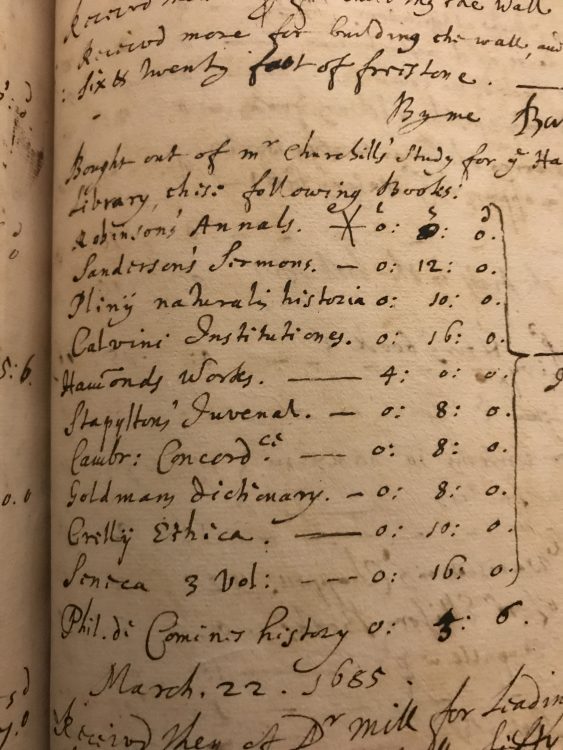 Received more for building the wall
Received more for building the wall, and
six & twenty foot of freestone.
By me
Bought out of mr Churchills' Study for ye Ha
Library, these following Books:
l s d
Robinsons' Annals. 0: 8: 0.
Sanderson's Sermons. — 0: 12: 0.
Pliny naturalis historia 0: 10: 0.
Calvini Institutiones. 0: 16: 0.
5: 6. Ham̄onds Works. — 4: 0: 0.
Stapyltons' Juvenal. — 0: 8: 0.
Cambr: Concordce. — 0: 8: 0.
0. 0 Goldmans Dictionary. — 0: 8: 0.
Crelly Ethica. — 0: 10: 0.
Seneca 3 Vol: - - — 0: 16: 0.
Phil. de Comines history 0: 5: 6.
March. 22. 1685.
Received then of Dr Mill for Leadin